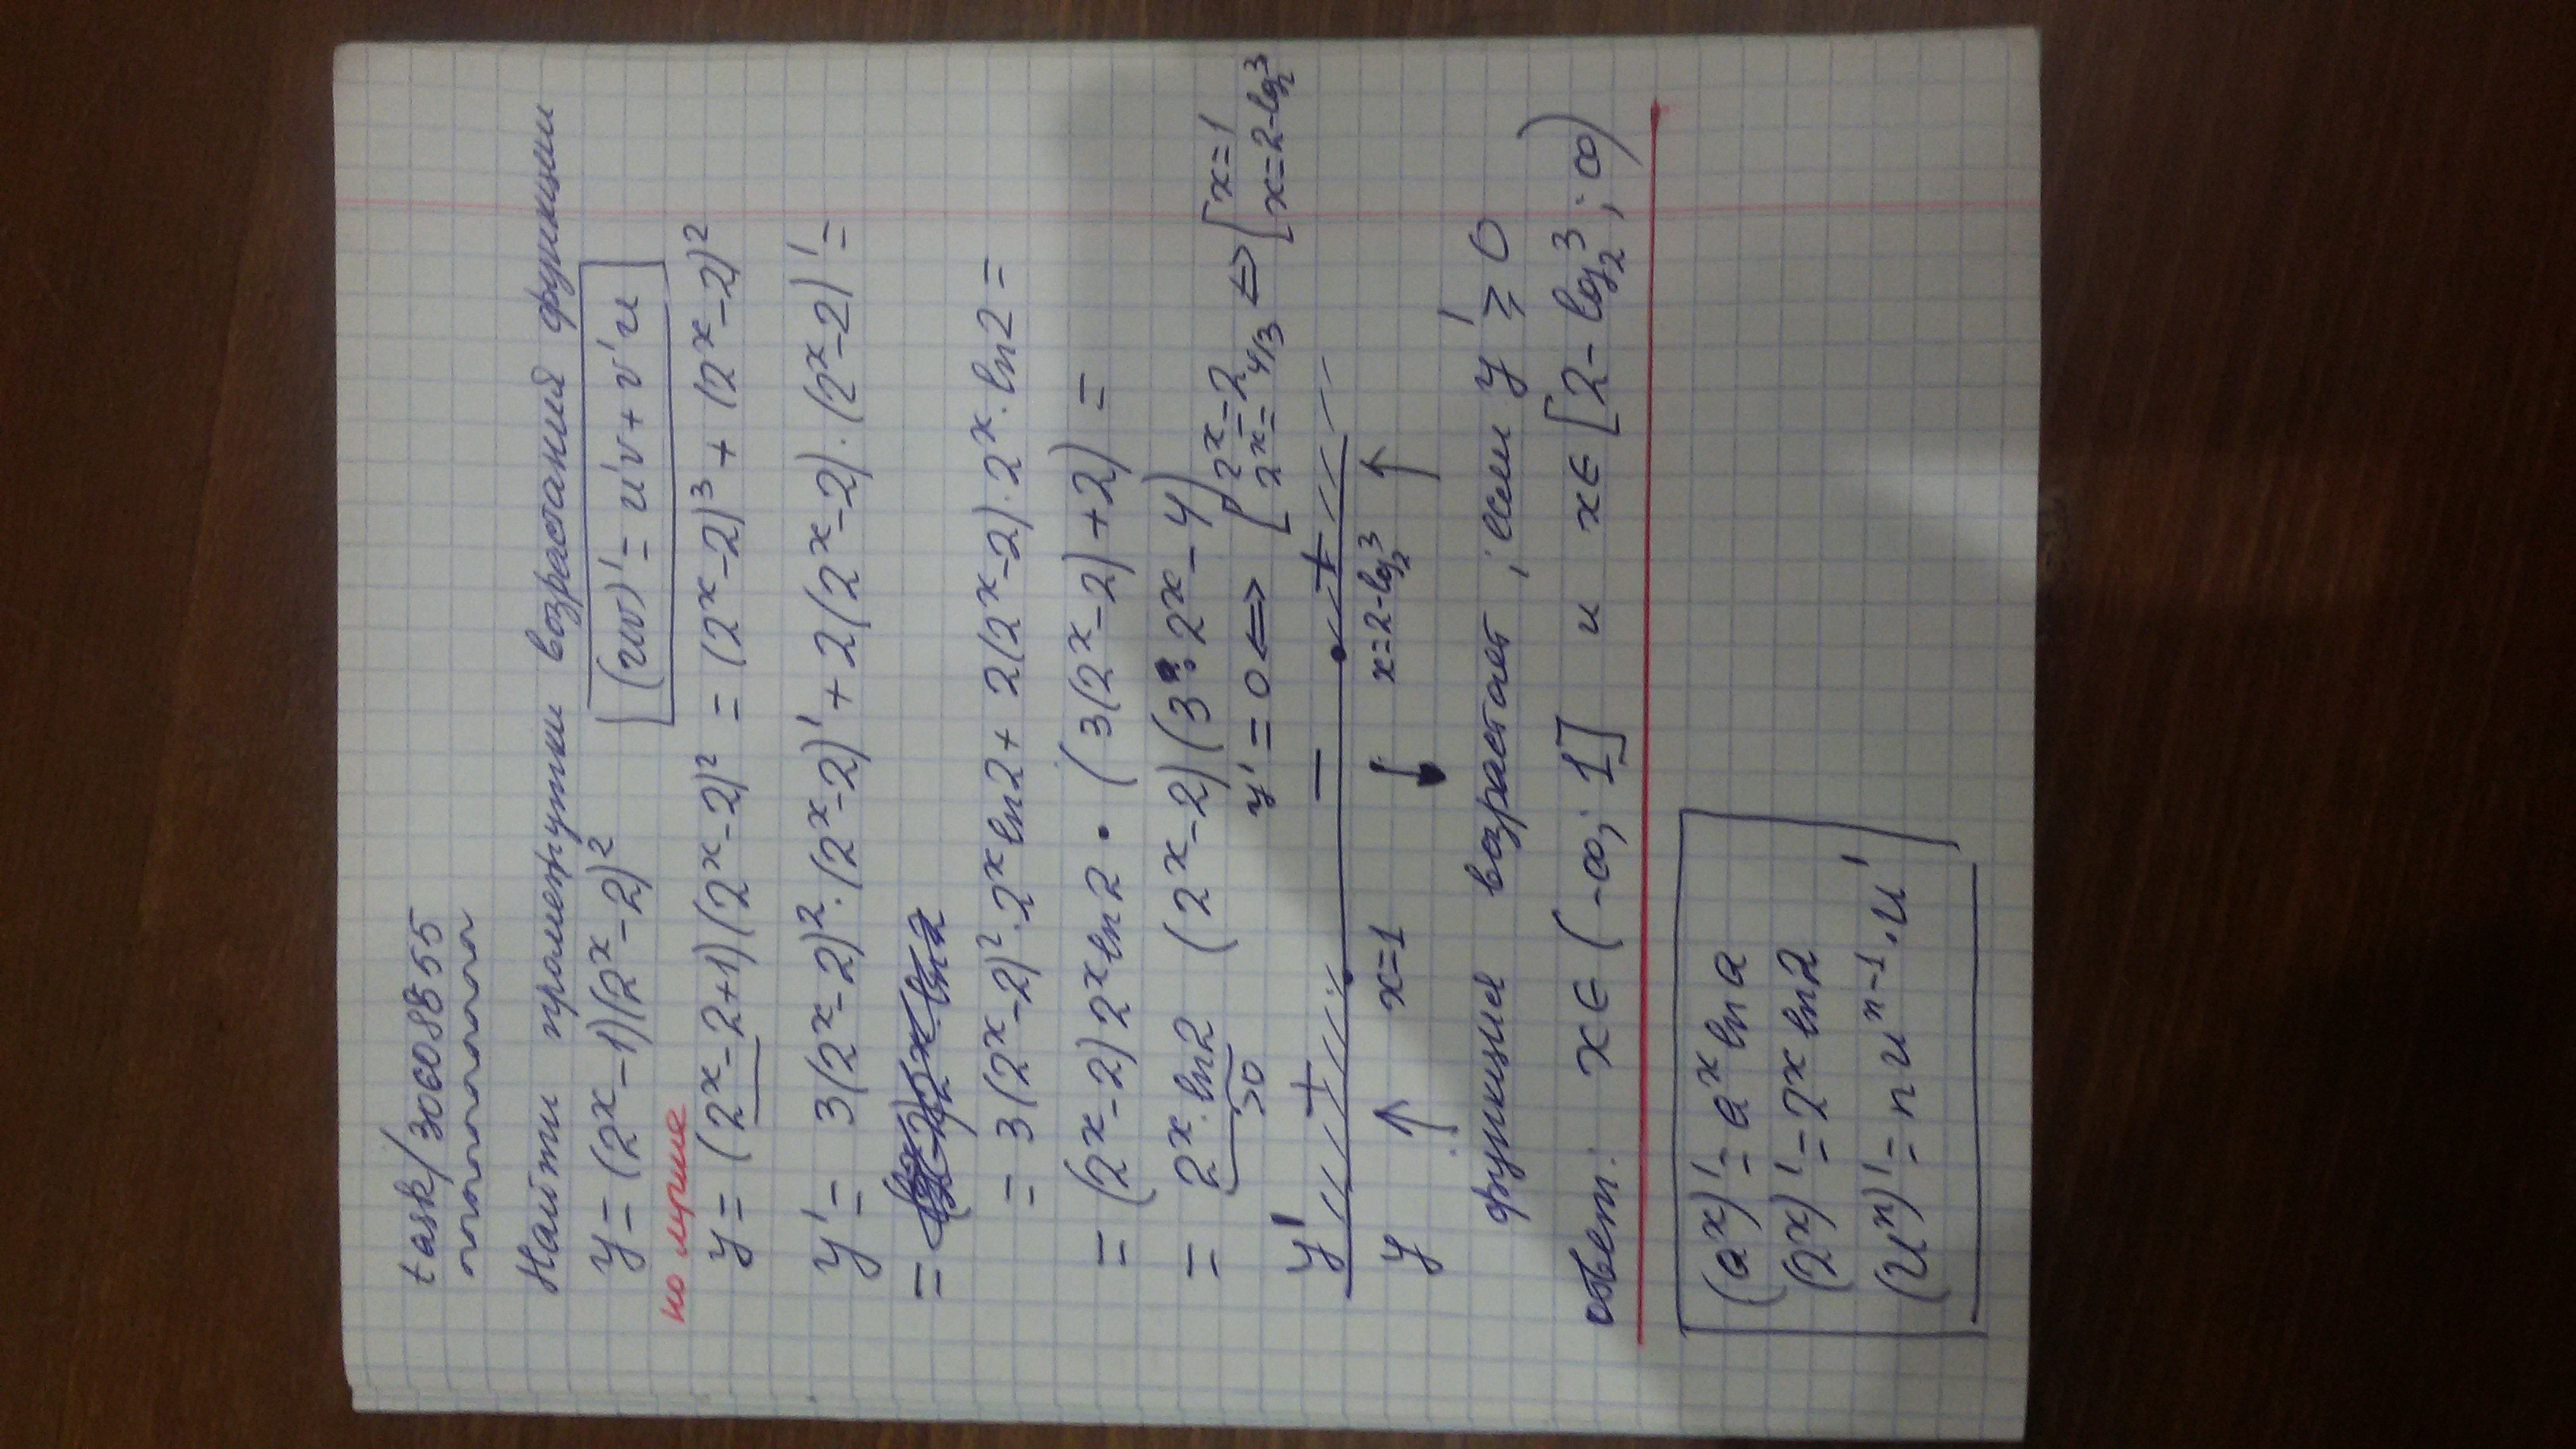 task/30608855
Найти промежутки возрастания функции
y=(2ˣ-1)(2ˣ-2)² (uv)'=u'v+v'u
но лучше
y=(2ˣ-2+1)(2ˣ-2)² = (2ˣ-2)³+(2ˣ-2)²
y'= 3(2ˣ-2)²·(2ˣ-2)'+2(2ˣ-2)·(2ˣ-2)'=
=
= 3(2ˣ-2)²·2ˣln2+ 2(2ˣ-2)·2ˣ·ln2=
=(2ˣ-2)2ˣln2·(3(2ˣ-2)+2)=
= 2ˣ·ln2 (2ˣ-2)(3·2ˣ-4)
>0
y'=0⇔[2ˣ=2 2ˣ=4/3 ⇔[x=1 x=2-log₂3
y' + − +
y ↑ x=1 ↓ x=2-log₂3 ↑
функция возрастает, если y'≥0
ответ: x∈(-∞; 1] и x∈[2-log₂3; ∞)
(aˣ)'=aˣlna
(2ˣ)'=2ˣln2
(uⁿ)'=nuⁿ⁻¹·u'